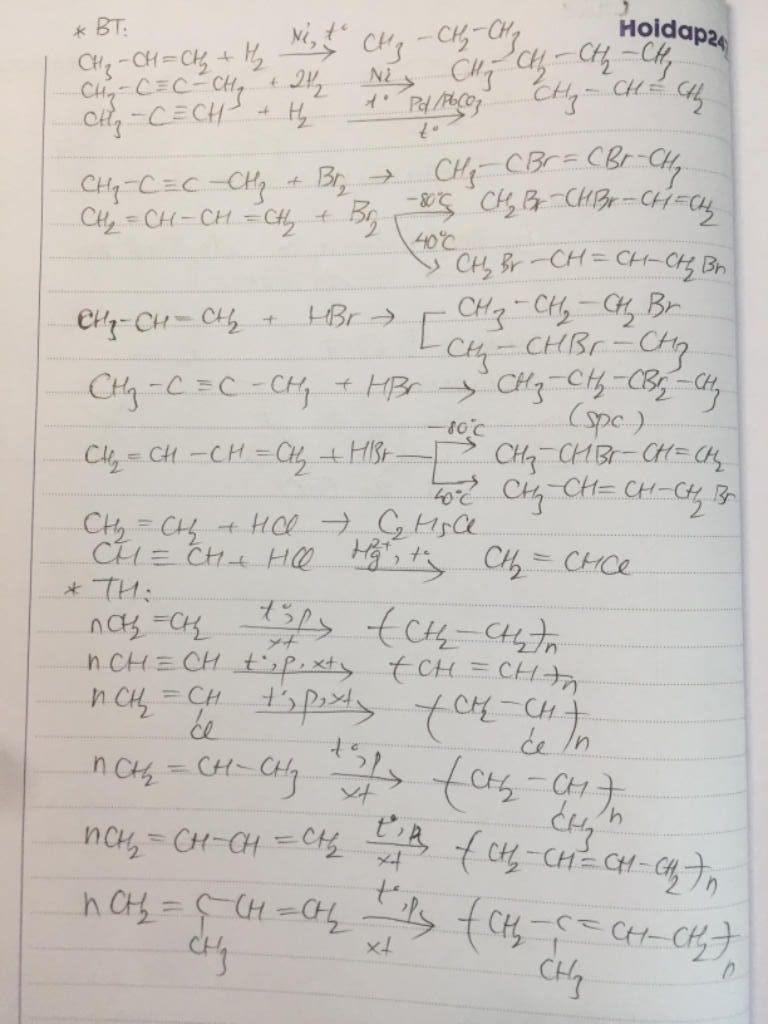 Hoidap247
* BT:
CH₃-CH=CH₂ + H₂ Ni, t° → CH₃-CH₂-CH₃
CH₃-C≡C-CH₃ + 2H₂ Ni t° → CH₃-CH₂-CH₂-CH₃
CH₃-C≡CH + H₂ Pd/PbCO₃ t° → CH₃-CH=CH₂
CH₃-C≡C-CH₃ + Br₂ → CH₃-CBr=CBr-CH₃
CH₂=CH-CH=CH₂ + Br₂ -80°C → CH₂Br-CHBr-CH=CH₂
40°C → CH₂Br-CH=CH-CH₂Br
CH₃-CH=CH₂ + HBr → CH₃-CH₂-CH₂Br
CH₃-CHBr-CH₃
CH₃-C≡C-CH₃ + HBr → CH₃-CH₂-CBr₂-CH₃
(spc)
CH₂=CH-CH=CH₂ + HBr -80°C → CH₃-CHBr-CH=CH₂
40°C → CH₃-CH=CH-CH₂Br
CH₂=CH₂ + HCl → C₂H₅Cl
CH≡CH + HCl Hg²⁺, t° → CH₂=CHCl
* TH:
nCH₂=CH₂ t°, p xt → (CH₂-CH₂)n
nCH≡CH t°, p, xt → (CH=CH)n
nCH₂=CH t°, p, xt → (CH₂-CH)n
Cl Cl
nCH₂=CH-CH₃ t°, p xt → (CH₂-CH)n
CH₃
nCH₂=CH-CH=CH₂ t°, p xt → (CH₂-CH=CH-CH₂)n
nCH₂=C-CH=CH₂ t°, p xt → (CH₂-C=CH-CH₂)n
CH₃ CH₃